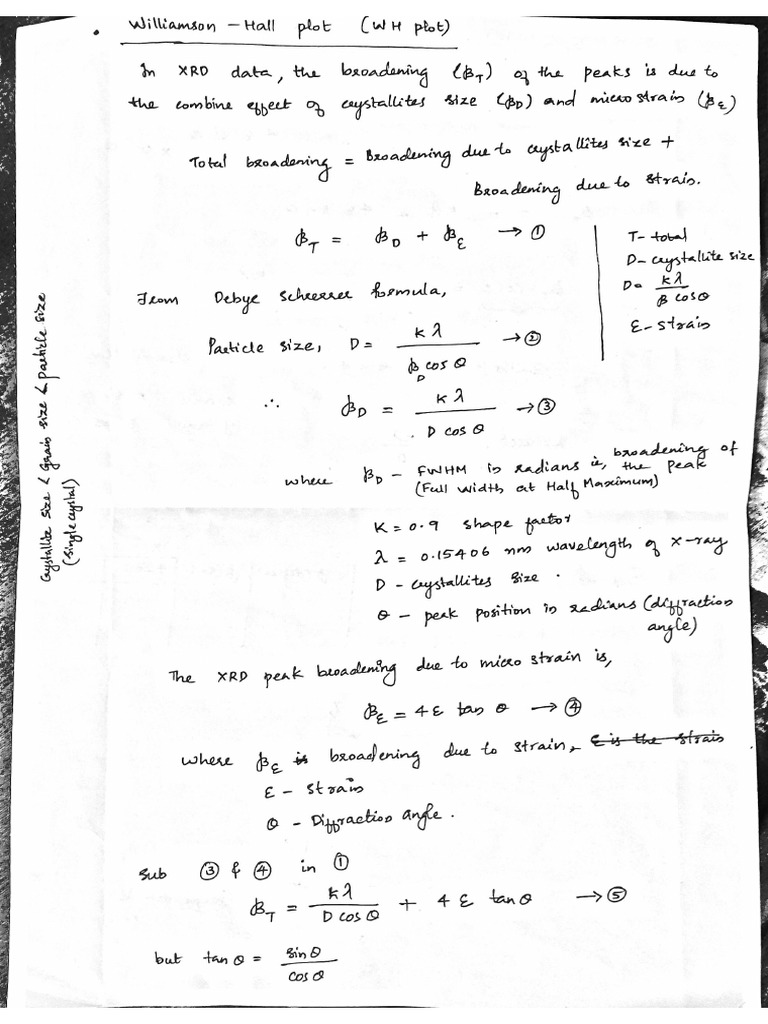 Williamson – Hall plot (WH plot)
In XRD data, the broadening (βT) of the peaks is due to
the combine effect of crystallites size (βD) and microstrain (βε)
Total broadening = Broadening due to crystallites size +
Broadening due to strain.
βT = βD + βε → ①
T – total
D – crystallite size
D = Kλ / β cosθ
ε – strain
From Debye scherrer formula,
Particle size, D = Kλ / βD cosθ → ②
∴ βD = Kλ / D cosθ → ③
where βD – FWHM in radians ie, broadening of the peak
(Full width at Half Maximum)
K = 0.9 shape factor
λ = 0.15406 nm wavelength of x-ray
D – crystallites size.
θ – peak position in radians (diffraction
angle)
The XRD peak broadening due to micro strain is,
βε = 4ε tanθ → ④
where βε is broadening due to strain, ε is the strain
ε – strain
θ – Diffraction angle.
Sub ③ & ④ in ①
βT = Kλ / D cosθ + 4ε tanθ → ⑤
but tanθ = sinθ / cosθ
Crystallite size < Grain size < particle size
(single crystal)